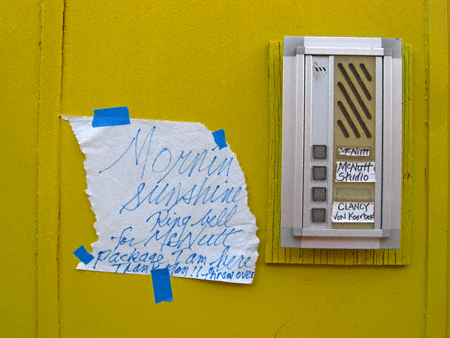 Mornin
Sunshine
Ring bell
for McNutt
package I am here
Thank You!! throw over
McNutt
McNutt
Studio
CLANCY
Von Koerber